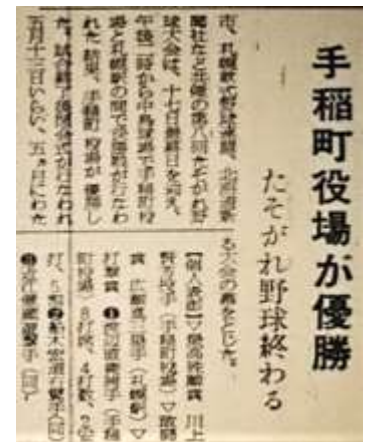 手稲町役場が優勝
たそがれ野球終わる
市、札幌軟式野球連盟、北海道新
聞社など共催の第八回たそがれ野
球大会は、十七日最終日を迎え、
午後二時から中島球場で手稲町役
場と札幌駅の間で決勝戦が行なわ
れた結果、手稲町役場が優勝し
た。試合終了後閉会式が行なわれ
五月十三日いらい、五ヵ月にわた
る大会の幕をとじた。
【個人表彰】▽最高殊勲賞 川上
投手（手稲町役場）▽敢闘
賞 広瀬 三塁手（札幌駅）▽
打撃賞 ❶渡辺 捕手（手稲
町役場）8打席、4打数、
打、5割❷船木 右翼手（同）
❸ 遊撃手（同）